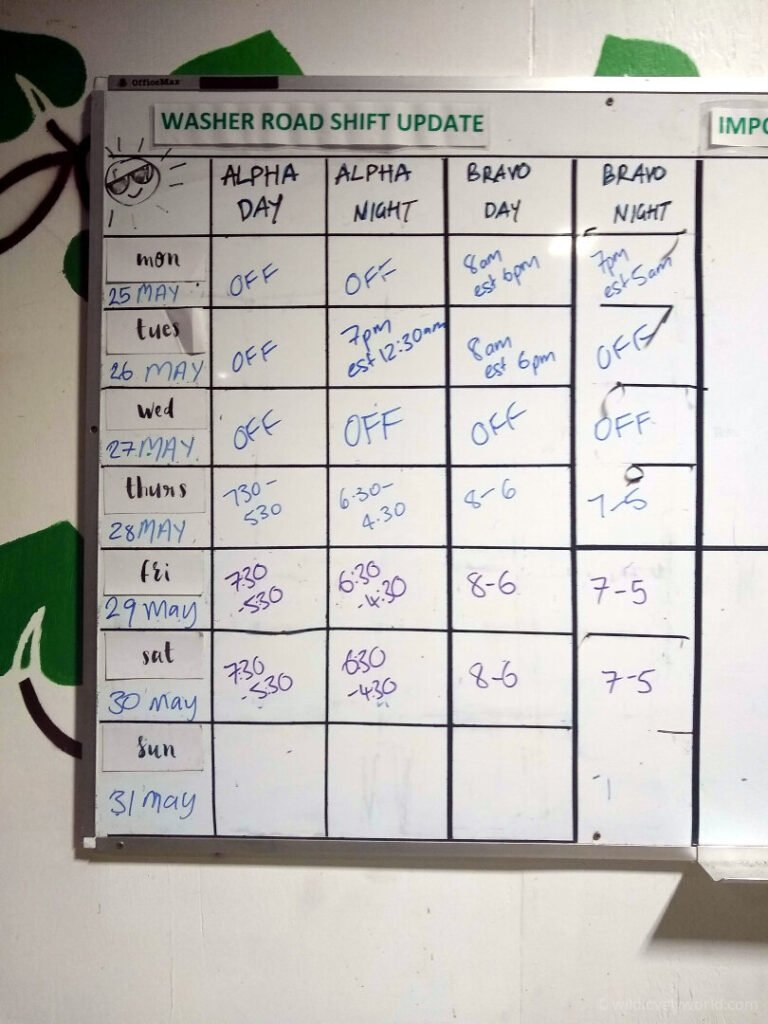 OfficeMax
WASHER ROAD SHIFT UPDATE
IMPO
ALPHA
DAY
ALPHA
NIGHT
BRAVO
DAY
BRAVO
NIGHT
mon
25 MAY
OFF
OFF
8am
est 6pm
7pm
est 5am
tues
26 MAY
OFF
7pm
est 12:30am
8am
est 6pm
OFF
wed
27 MAY
OFF
OFF
OFF
OFF
thurs
28 MAY
730-
530
6:30-
4.30
8-6
7-5
fri
29 May
730
-530
6:30
-4:30
8-6
7-5
sat
30 May
730
-530
630
-430
8-6
7-5
sun
31 May
© wildlovelyworld.com